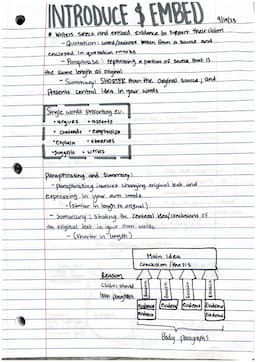 INTRODUCE & EMBED
* Writers select and embed evidence to support their claim
- Quotation: word/sentence taken from a source and
enclosed in quotation marks
- Paraphrase: rephrasing a portion of source that is
the same length as original
- Summary: SHORTER than the original source, and
presents central idea in your words
Single words presenting ev:
• argues • asserts
• contends • emphasize
• explain • observes
• suggests • writes
Paraphrasing and Summary:
- Paraphrasing involves changing original text and
expressing in your own words
- (similar in length to original)
- Summarizing: stating the central idea/conclusions of
an original text in your own words
- (shorter in length)
Main idea
conclusion/thesis
Reason
Claim should
paragraph
Reason Reason Reason Reason
Evidence Evidence Evidence Evidence
Evidence Evidence
Body paragraphs